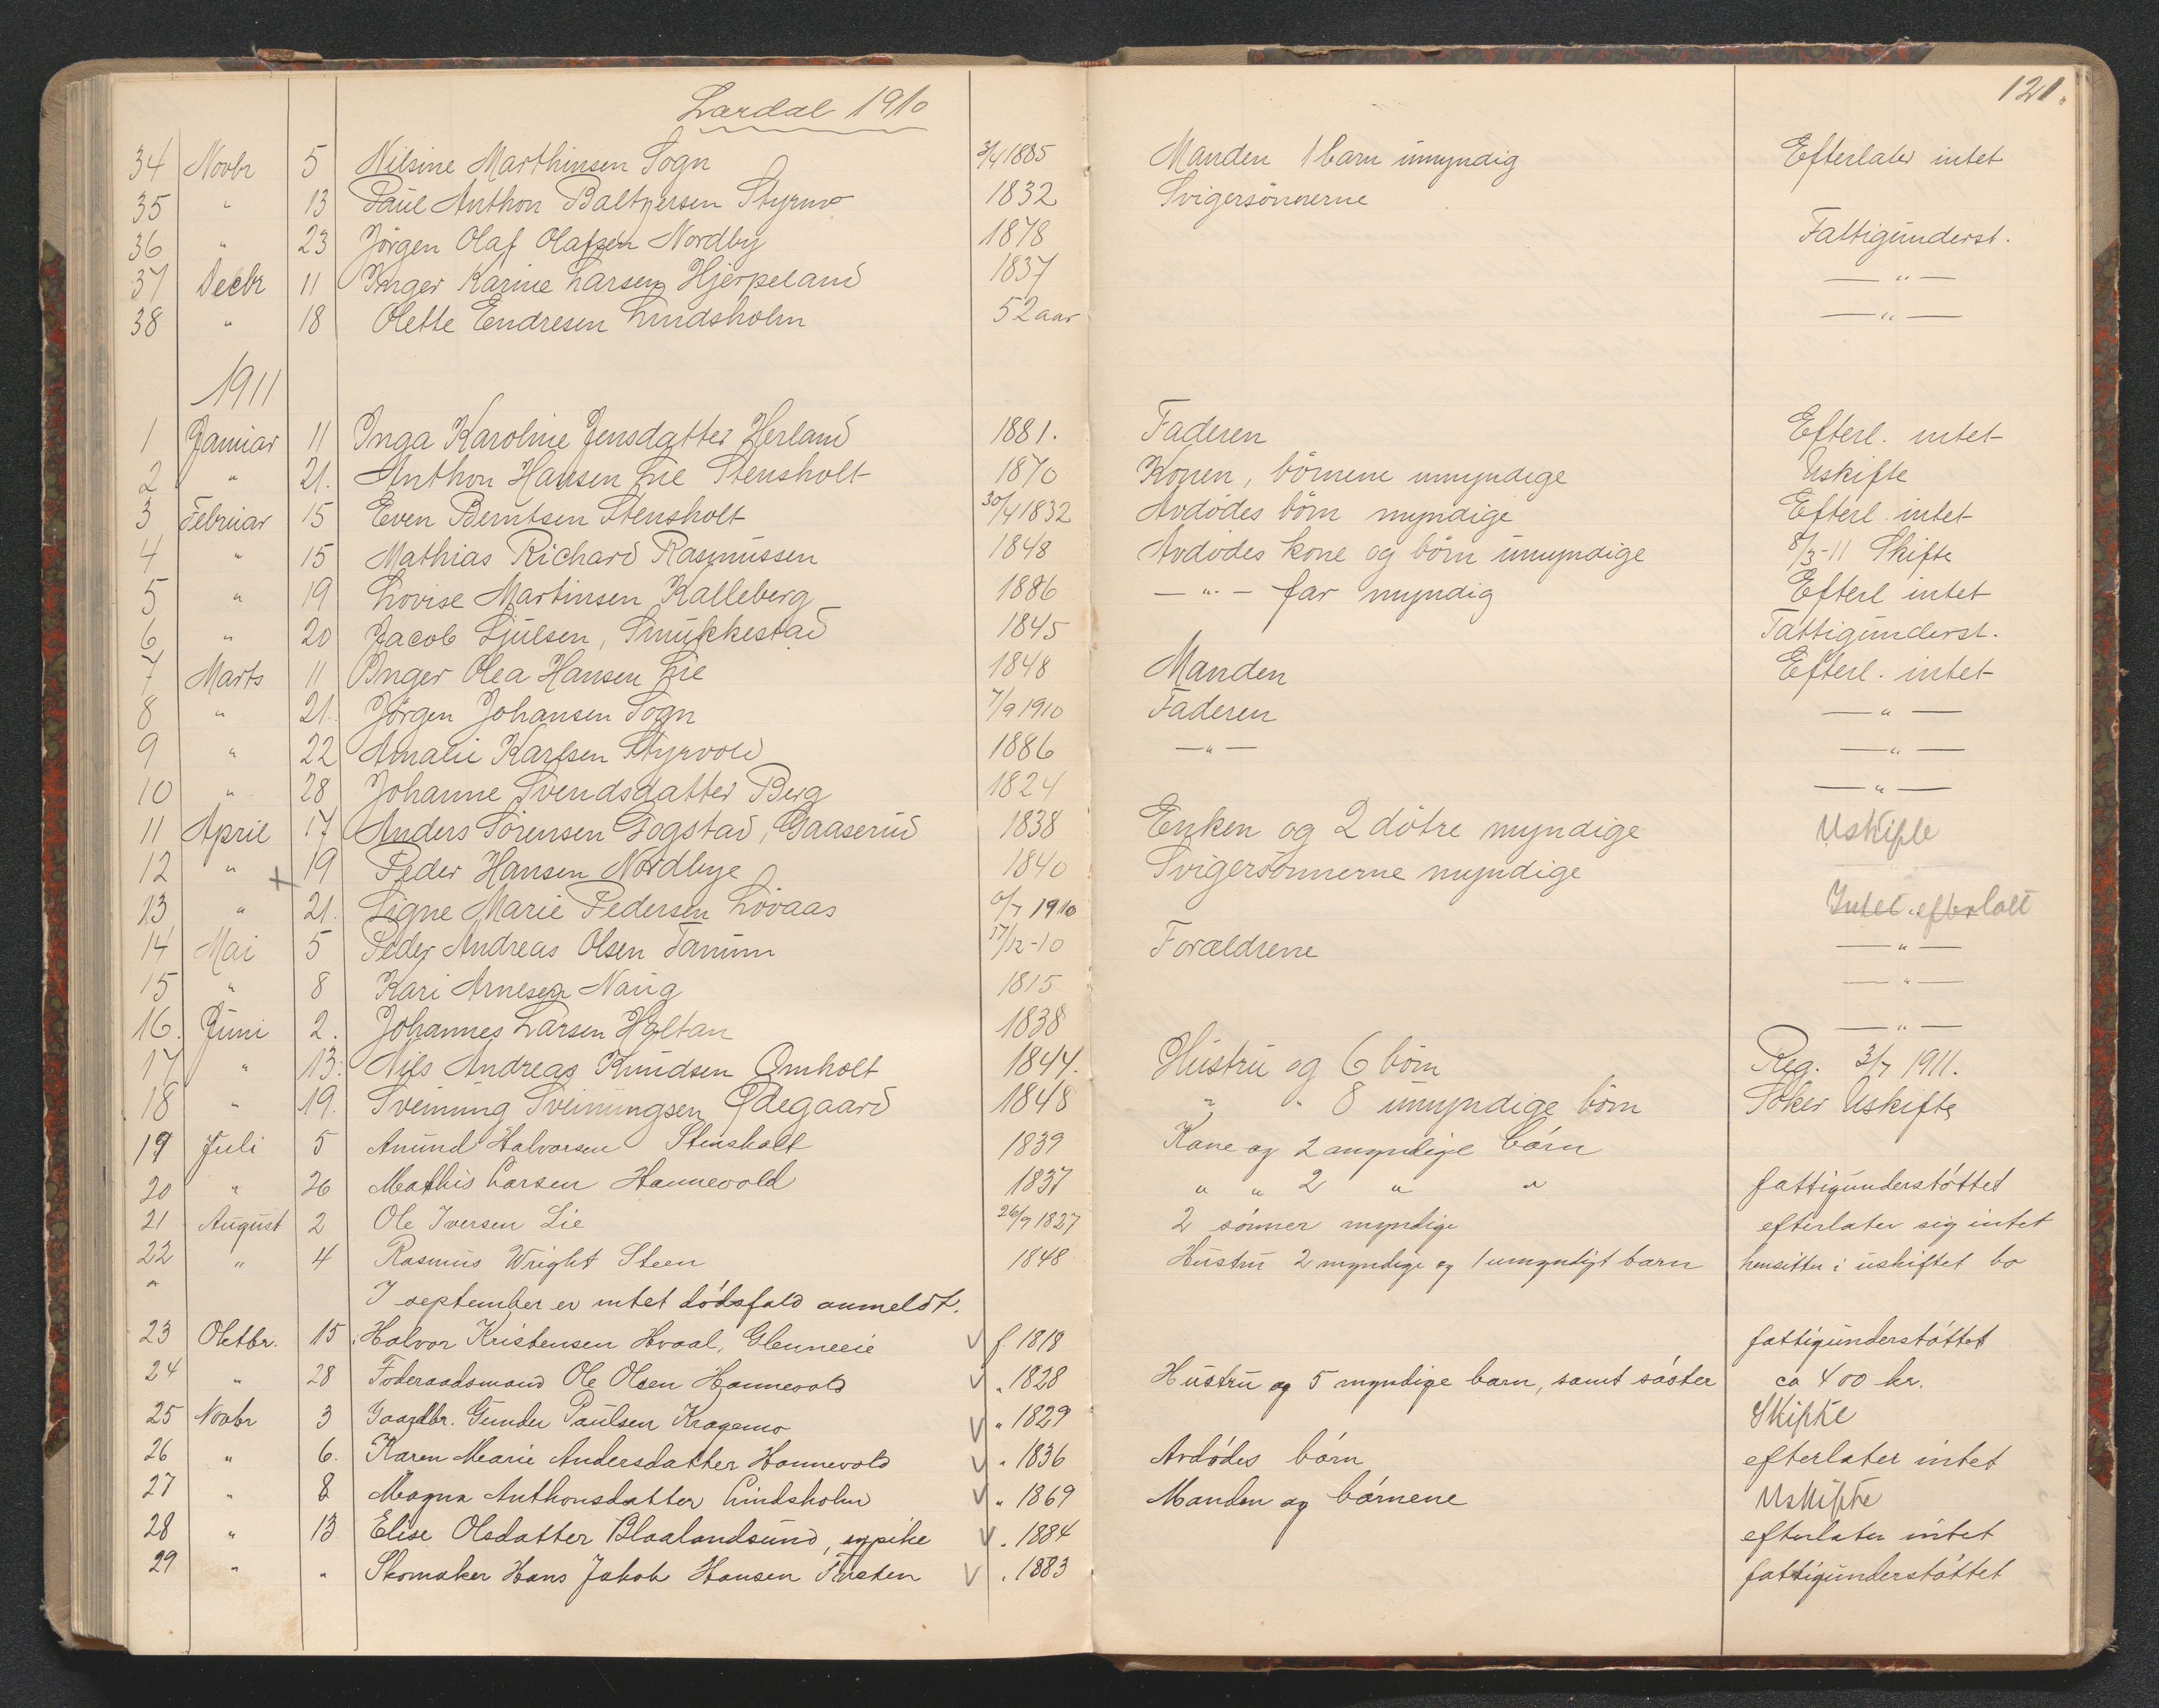 Lardal 1910
121.
34 Novbr 5 Nilsine Marthinsen Sogn 3/4 1885 Manden 1 barn umyndig Efterlater intet
35 " 13 Paul Anthon Baltzersen Styrmo 1832 Svigersønnerne
36 " 23 Jörgen Olaf Olafsen Nordby 1878 Fattigunderst.
37 Decbr 11 Inger Karine Larsen Hjerpeland 1837 — " —
38 " 18 Olette Endresen Lindsholm 52 aar — " —
1911
1 Januar 11 Inga Karoline Jensdatter Herland 1881. Faderen Efterl. intet
2 " 21. Anthon Hansen Lie Stensholt 1870 Konen, börnene umyndige Uskifte
3 Februar 15 Even Berntsen Stensholt 30/4 1832 Avdödes börn myndige Efterl. intet
4 " 15 Mathias Richard Rasmussen 1848 Avdödes kone og börn umyndige 8/3-11 Skifte
5 " 19 Lovise Martinsen Kalleberg 1886 — " — far myndig Efterl intet
6 " 20 Jacob Ljulsen, Smukkestad 1845 Fattigunderst.
7 Marts 11 Inger Olea Hansen Lie 1848 Manden Efterl. intet
8 " 21. Jörgen Johansen Sogn 7/9 1910 Faderen — " —
9 " 22 Amalie Karlsen Styrvold 1886 — " — — " —
10 " 28 Johanne Svendsdatter Berg 1824 — " —
11 April 17 Anders Sörensen Gogstad, Gaaserud 1838 Enken og 2 dötre myndige Uskifte
12 " + 19 Peder Hansen Nordbye 1840 Svigersönnerne myndige
13 " 21. Signe Marie Pedersen Lövaas /7 1910 Intet efterlatt
14 Mai 5 Peder Andreas Olsen Tanum 17/12-10 Forældrene — " —
15 " 8 Kari Arnesen Naug 1815 — " —
16. Juni 2. Johannes Larsen Holtan 1838 — " —
17 " 13. Nils Andreas Knudsen Omholt 1844. Hustru og 6 börn Reg. 3/7 1911.
18 " 19. Sveinung Sveinungsen Ødegaard 1848 " " 8 umyndige börn Söker Uskifte
19 Juli 5 Amund Halvorsen Stensholt 1839 Kone og 2 umyndige börn
20 " 26 Mathis Larsen Hannevold 1837 " " 2 " " fattigunderstöttet
21 August 2 Ole Iversen Lie 26/9 1827 2 sönner myndige efterlater sig intet
22 " 4 Rasmus Wright Steen 1848 Hustru 2 myndige og 1 umyndigt barn hensitter i uskiftet bo
" I september er intet dödsfald anmeldt.
23 Oktbr. 15 Halvor Kristensen Hvaal, Glenneeie f 1818 fattigunderstöttet
24 " 28 Föderaadsmand Ole Olsen Hannevold " 1828 Hustru og 5 myndige barn, samt söster ca 400 kr.
25 Novbr 3 Gaardbr. Gunder Paulsen Kragemo " 1829 Skifte
26 " 6. Karen Marie Andersdatter Hannevold " 1836 Avdödes börn efterlater intet
27 " 8 Magna Anthonsdatter Lindsholm " 1869 Manden og börnene Uskifte
28 " 13 Elise Olsdatter Blaalandsund, pike " 1884 efterlater intet
29 " " Skomaker Hans Jakob Hansen " 1883 fattigunderstöttet